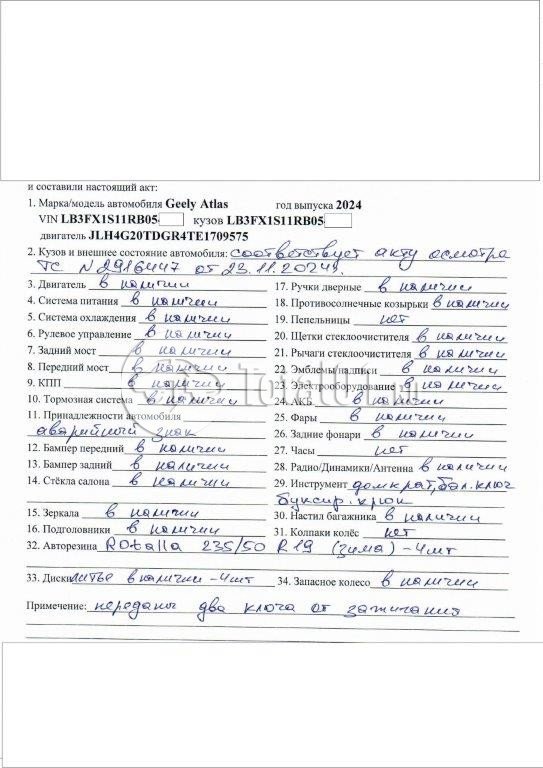 и составили настоящий акт:
1. Марка/модель автомобиля Geely Atlas год выпуска 2024
VIN LB3FX1S11RB05 кузов LB3FX1S11RB05
двигатель JLH4G20TDGR4TE1709575
2. Кузов и внешнее состояние автомобиля: соответствует акту осмотра
ТС N2916447 от 23.11.2024г.
3. Двигатель в наличии
4. Система питания в наличии
5. Система охлаждения в наличии
6. Рулевое управление в наличии
7. Задний мост в наличии
8. Передний мост в наличии
9. КПП в наличии
10. Тормозная система в наличии
11. Принадлежности автомобиля
аварийный знак
12. Бампер передний в наличии
13. Бампер задний в наличии
14. Стёкла салона в наличии
15. Зеркала в наличии
16. Подголовники в наличии
17. Ручки дверные в наличии
18. Противосолнечные козырьки в наличии
19. Пепельницы нет
20. Щетки стеклоочистителя в наличии
21. Рычаги стеклоочистителя в наличии
22. Эмблемы/надписи в наличии
23. Электрооборудование в наличии
24. АКБ в наличии
25. Фары в наличии
26. Задние фонари в наличии
27. Часы нет
28. Радио/Динамики/Антенна в наличии
29. Инструмент домкрат, бал. ключ
буксир. крюк
30. Настил багажника в наличии
31. Колпаки колёс нет
32. Авторезина Rotalla 235/50 R19 (зима) - 4шт
33. Диски литье в наличии - 4шт
34. Запасное колесо в наличии
Примечание: переданы два ключа от зажигания